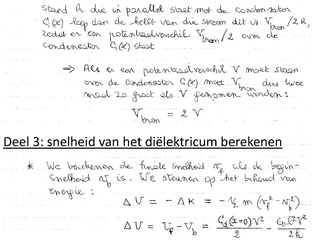 stand R die in parallel staat met de condensator
C₁(x) loop dan de helft van die stroom dit is V_bron/2R,
zodat er een potentiaalverschil V_bron/2 over de
condensator C₁(x) staat
⇒ Als er een potentiaalverschil V moet staan
over de condensator C₁(x) moet V_bron dus twee
maal zo groot als V genomen worden:
V_bron = 2 V
Deel 3: snelheid van het diëlektricum berekenen
* We berekenen de finale snelheid v_f als de begin-
snelheid v_b is. We steunen op het behoud van
energie:
Δ U = - Δ K = - ½ m (v_f² - v_b²)
Δ U = U_f - U_b =